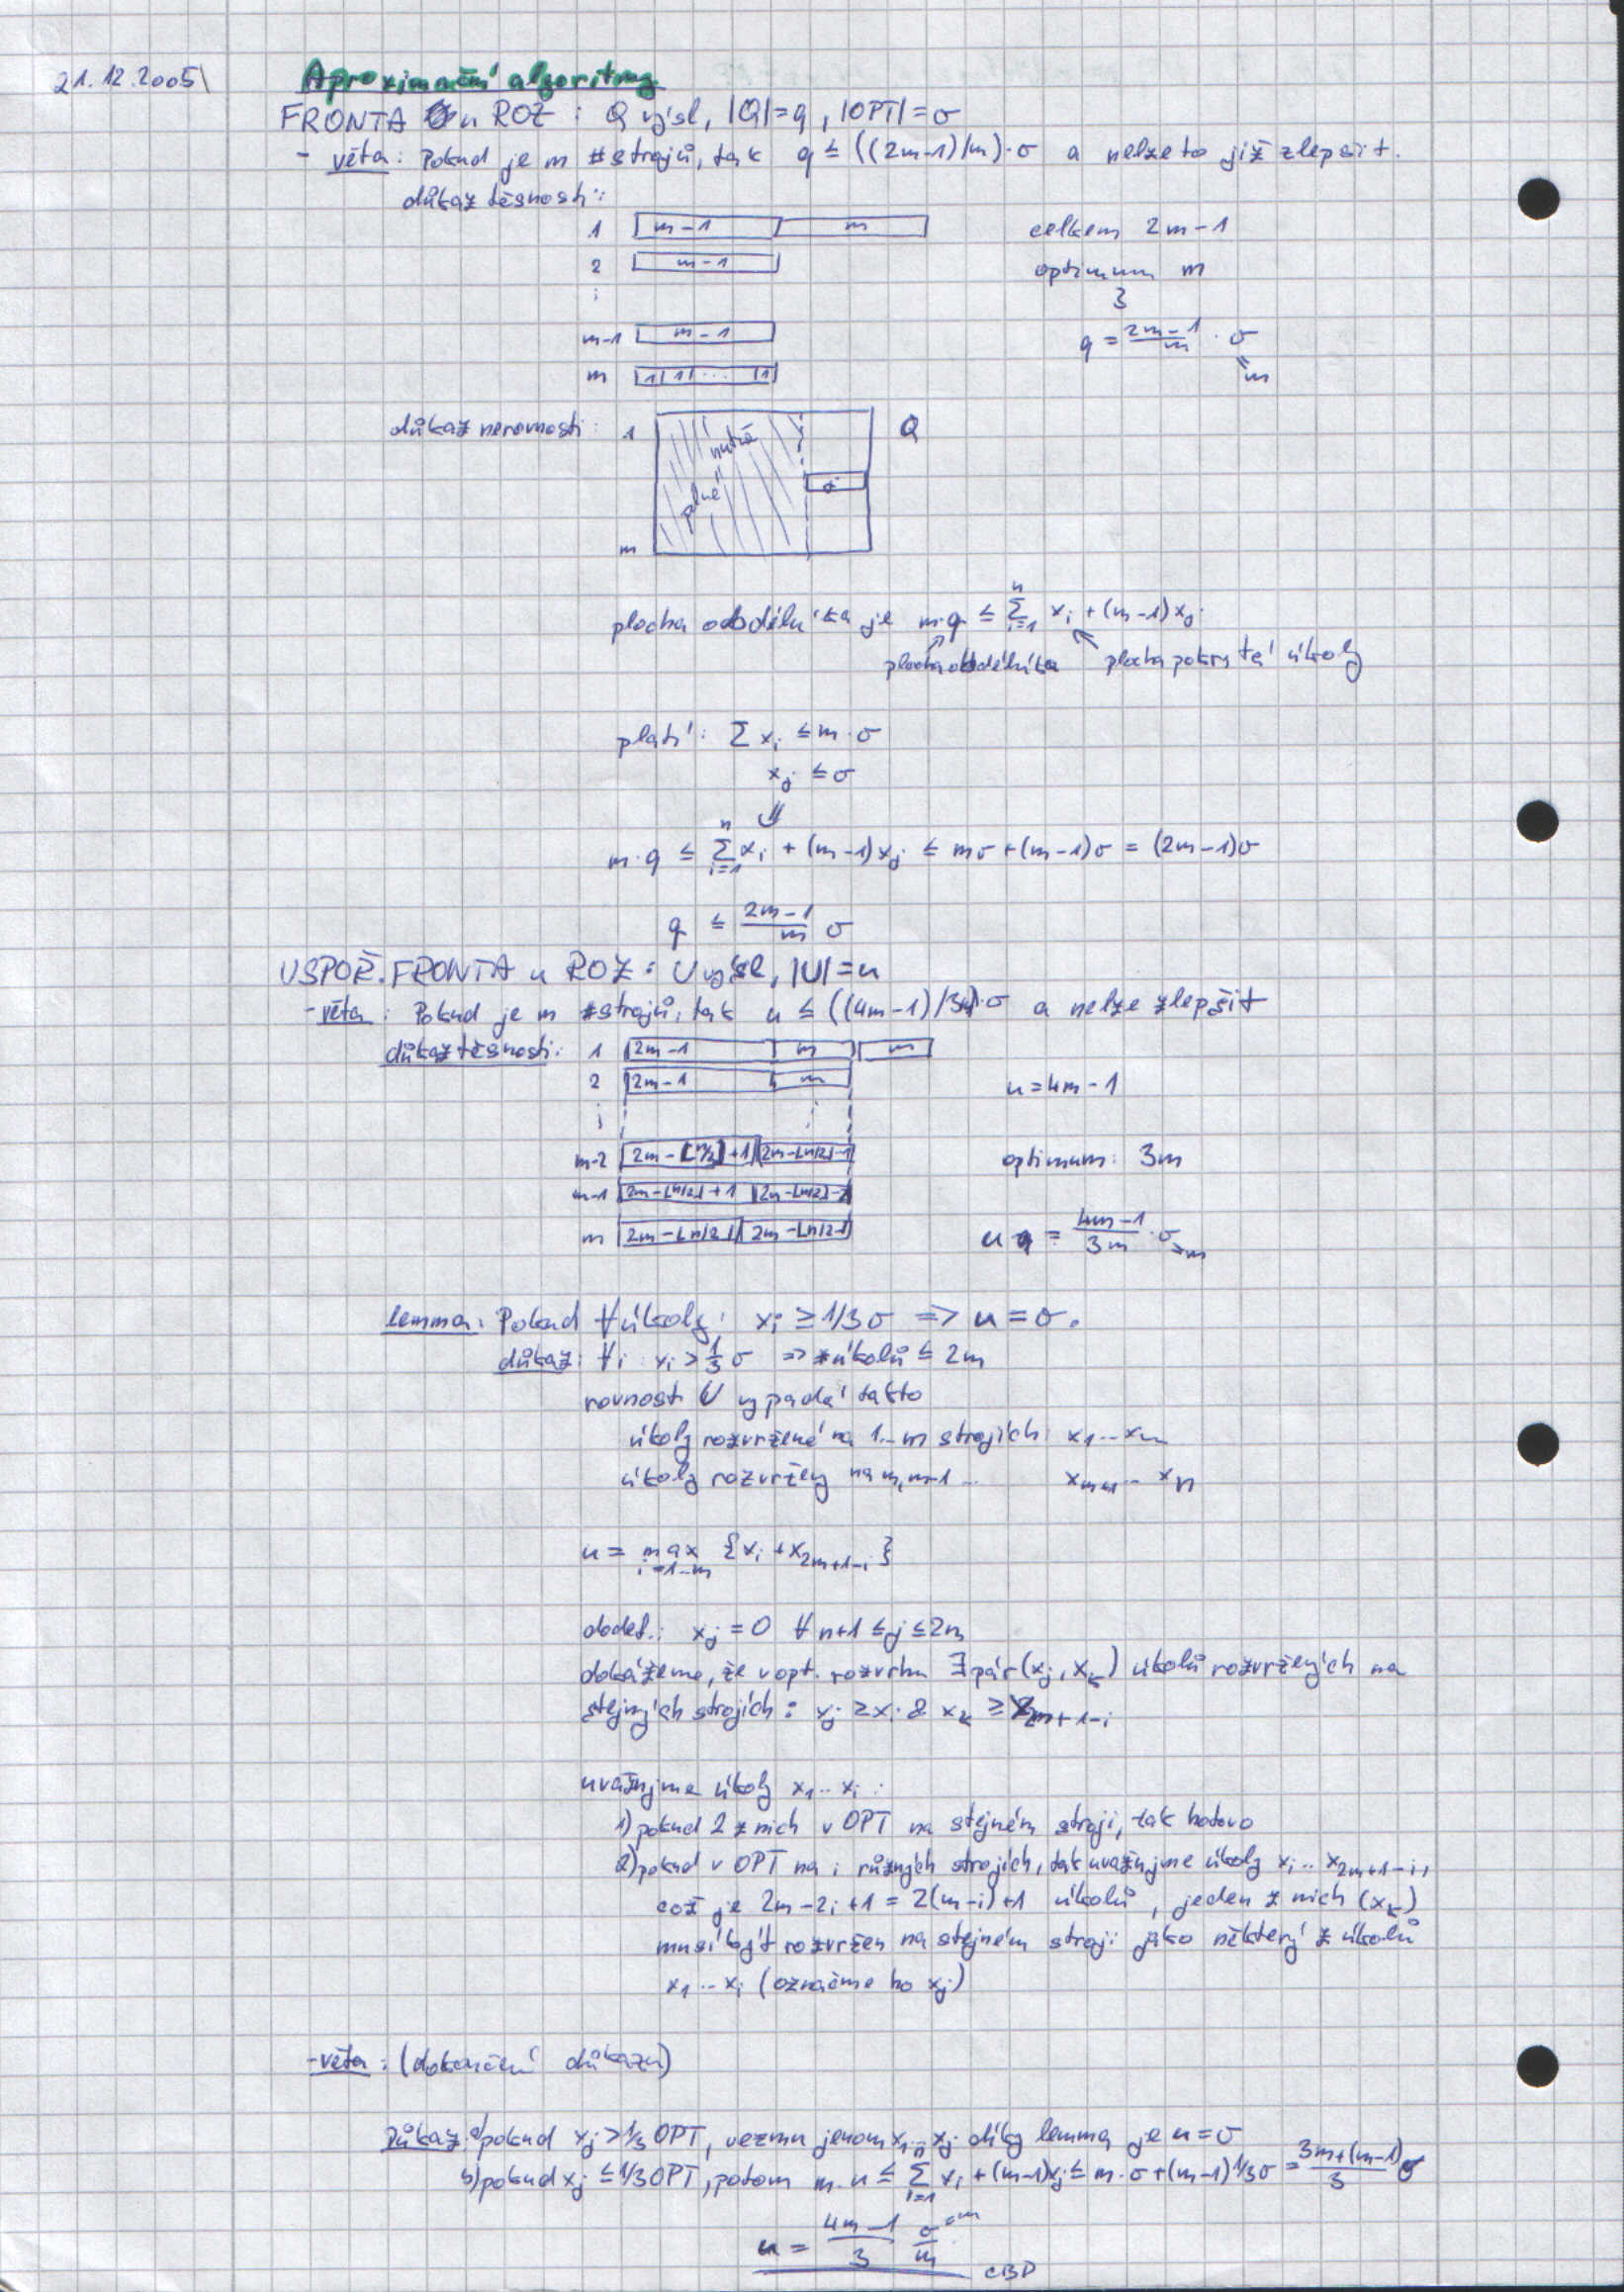 21.12.2005
Aproximační algoritmy
FRONTA u ROZ: Q výsl, |Q|=q, |OPT|=σ
- věta: Pokud je m #strojů, tak q ≤ ((2m-1)/m)·σ a nelze to již zlepšit.
důkaz těsnosti:
1 m-1 m celkem 2m-1
2 m-1 optimum m
⋮
m-1 m-1 q = (2m-1)/m · σ
m 1 1 ... 1 = m
důkaz nerovnosti: 1 nutně plné Q
m
plocha obdélníka je m·q ≤ Σ_{i=1}^{n} x_i + (m-1)x_j
plocha obdélníka plocha pokrytá úkoly
platí: Σ x_i ≤ m·σ
x_j ≤ σ
⇓
m·q ≤ Σ_{i=1}^{n} x_i + (m-1)x_j ≤ mσ+(m-1)σ = (2m-1)σ
q ≤ (2m-1)/m σ
USPOŘ. FRONTA u ROZ: U výsl, |U|=u
- věta: Pokud je m #strojů, tak u ≤ ((4m-1)/3m)·σ a nelze zlepšit
důkaz těsnosti: 1 2m-1 m m
2 2m-1 m u=4m-1
⋮
m-2 2m-⌊m/2⌋+1 2m-⌊m/2⌋-1 optimum: 3m
m-1 2m-⌊m/2⌋+1 2m-⌊m/2⌋-2
m 2m-⌊m/2⌋ 2m-⌊m/2⌋-1 u = (4m-1)/3m · σ
lemma: Pokud ∀úkoly: x_i ≥ 1/3σ ⇒ u=σ.
důkaz: ∀i: x_i > 1/3 σ ⇒ #úkolů ≤ 2m
rovnosti U vypadá takto
úkoly rozvržené na 1..m strojích: x_1...x_m
úkoly rozvrženy na m, m-1... x_{m+1}...x_n
u = max_{i=1..m} {x_i + x_{2m+1-i}}
dodef.: x_j = 0 ∀ n+1 ≤ j ≤ 2m
dokážeme, že v opt. rozvrhu ∃ pár (x_j, x_k) úkolů rozvržených na
stejných strojích: x_j ≥ x_i & x_k ≥ x_{2m+1-i}
uvažujme úkoly x_1...x_i:
1) pokud 2 z nich v OPT na stejném stroji, tak hotovo
2) pokud v OPT na i různých strojích, tak uvažujme úkoly x_i...x_{2m+1-i},
což je 2m-2i+1 = 2(m-i)+1 úkolů, jeden z nich (x_k)
musí být rozvržen na stejném stroji jako některý z úkolů
x_1...x_i (označme ho x_j)
- věta: (dokončení důkazu)
Důkaz: a) pokud x_j > 1/3 OPT, vezmu jenom x_1...x_j díky lemma je u=σ
b) pokud x_j ≤ 1/3 OPT, potom m·u ≤ Σ_{i=1} x_i + (m-1)x_j ≤ m·σ+(m-1)1/3σ = (3m+(m-1))/3 σ
u = (4m-1)/3 σ/m
CBD